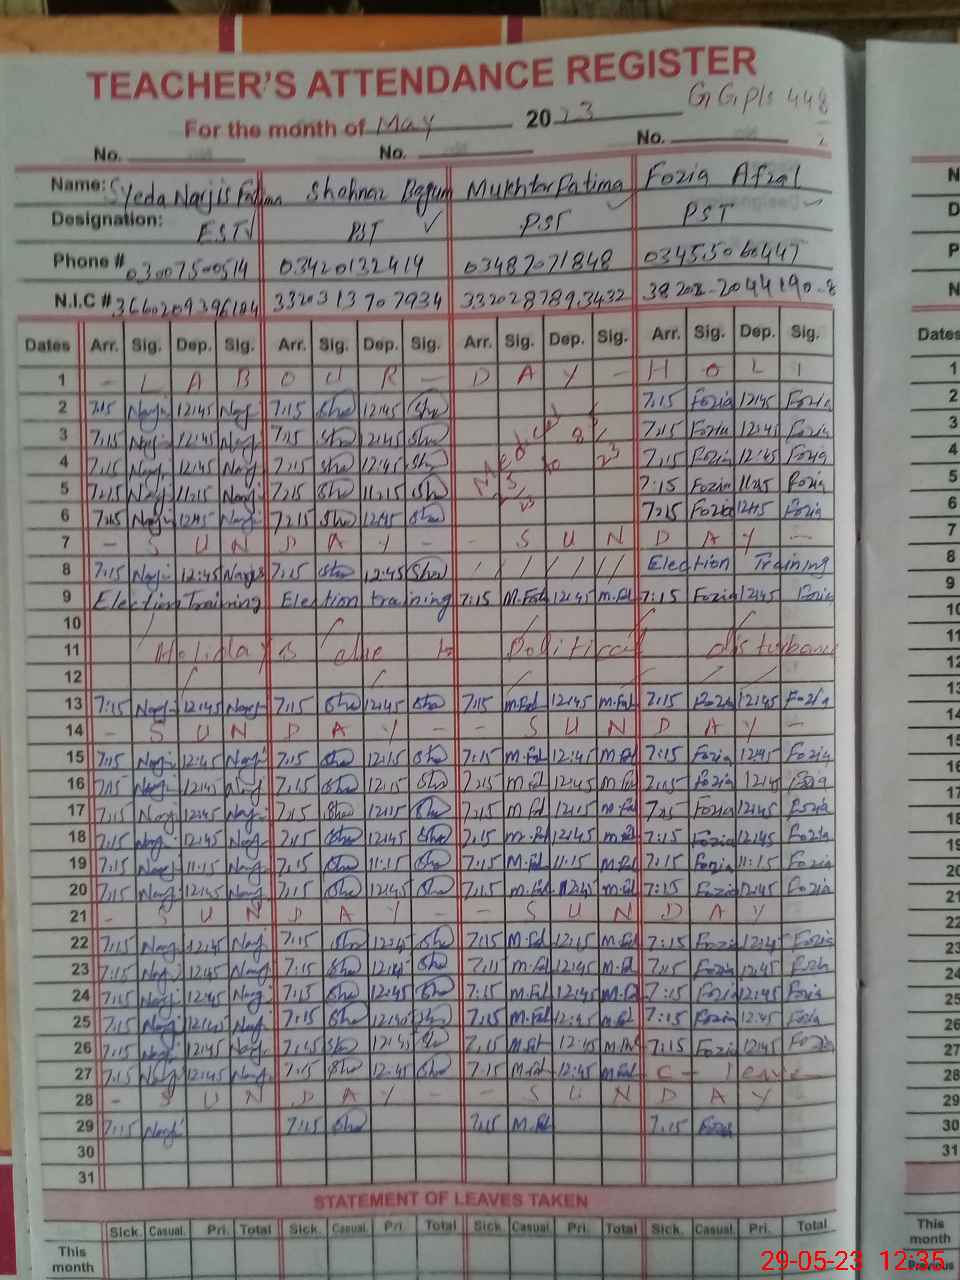 TEACHER'S ATTENDANCE REGISTER
G G P/s 448
For the month of May 2023
No. No. No.
Name: Syeda Narjis Fatima Shahnaz Begum Mukhtar Fatima Fozia Afzal
Designation: EST PST PST PST
Phone # 03007500514 03420132414 03487071848 03455060447
N.I.C # 3320313707934 3320287893432
Dates Arr. Sig. Dep. Sig. Arr. Sig. Dep. Sig. Arr. Sig. Dep. Sig. Arr. Sig. Dep. Sig.
1 - L A B O U R - D A Y - H O L I
2 7:15 Narj 12:45 Narj 7:15 Sha 12:45 Sha 7:15 Fozia 12:45 Fozia
3 7:15 Narj 12:45 Narj 7:15 Sha 12:45 Sha 7:15 Fozia 12:45 Fozia
4 7:15 Narj 12:45 Narj 7:15 Sha 12:45 Sha Medical to 7:15 Fozia 12:45 Fozia
5 7:15 Narj 11:15 Narj 7:15 Sha 11:15 Sha 7:15 Fozia 11:45 Fozia
6 7:15 Narj 12:45 Narj 7:15 Sha 12:45 Sha 7:15 Fozia 12:45 Fozia
7 - S U N D A Y - - S U N D A Y -
8 7:15 Narj 12:45 Narjis 7:15 Sha 12:45 Sha / / / / / / Election Training
9 Election Training Election training 7:15 M.Fat 12:45 M.Fat 7:15 Fozia 12:45 Fozia
10
11 Holidays due to Political disturbance
12
13 7:15 Narj 12:45 Narj 7:15 Sha 12:45 Sha 7:15 M.Fat 12:45 M.Fat 7:15 Fozia 12:45 Fozia
14 - S U N D A Y - - S U N D A Y -
15 7:15 Narj 12:45 Narj 7:15 Sha 12:15 Sha 7:15 M.Fat 12:45 M.Fat 7:15 Fozia 12:45 Fozia
16 7:15 Narj 12:45 Narj 7:15 Sha 12:15 Sha 7:15 M.Fat 12:45 M.Fat 7:15 Fozia 12:45 Fozia
17 7:15 Narj 12:45 Narj 7:15 Sha 12:15 Sha 7:15 M.Fat 12:15 M.Fat 7:15 Fozia 12:45 Fozia
18 7:15 Narj 12:45 Narj 7:15 Sha 12:45 Sha 7:15 M.Fat 12:45 M.Fat 7:15 Fozia 12:45 Fozia
19 7:15 Narj 11:15 Narj 7:15 Sha 11:15 Sha 7:15 M.Fat 11:15 M.Fat 7:15 Fozia 11:15 Fozia
20 7:15 Narj 12:45 Narj 7:15 Sha 12:45 Sha 7:15 M.Fat 12:45 M.Fat 7:15 Fozia 12:45 Fozia
21 - S U N D A Y - - S U N D A Y
22 7:15 Narj 12:45 Narj 7:15 Sha 12:45 Sha 7:15 M.Fat 12:15 M.Fat 7:15 Fozia 12:45 Fozia
23 7:15 Narj 12:45 Narj 7:15 Sha 12:45 Sha 7:15 M.Fat 12:45 M.Fat 7:15 Fozia 12:45 Fozia
24 7:15 Narj 12:45 Narj 7:15 Sha 12:45 Sha 7:15 M.Fat 12:45 M.Fat 7:15 Fozia 12:45 Fozia
25 7:15 Narj 12:45 Narj 7:15 Sha Sha 7:15 M.Fat 12:45 M.Fat 7:15 Fozia 12:45 Fozia
26 7:15 Narj 12:45 Narj 7:15 Sha Sha 7:15 M.Fat 12:45 M.Fat 7:15 Fozia 12:45 Fozia
27 7:15 Narj 12:45 Narj 7:15 Sha 12:45 Sha 7:15 M.Fat 12:45 M.Fat C - leave
28 - S U N D A Y - - S U N D A Y
29 7:15 Narj 7:15 Sha 7:15 M.Fat 7:15 Fozia
30
31
STATEMENT OF LEAVES TAKEN
Sick. Casual. Pri. Total Sick. Casual. Pri. Total Sick. Casual. Pri. Total Sick. Casual. Pri. Total
This month
Dates
1
2
3
4
5
6
7
8
9
10
11
12
13
14
15
16
17
18
19
20
21
22
23
24
25
26
27
28
29
30
31
This month
Previous
29-05-23 12:35